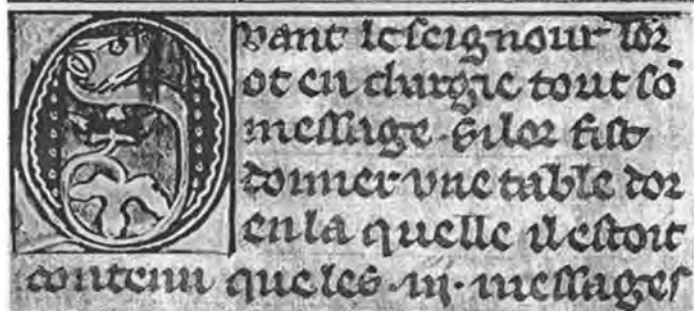 Quant le seignour lor
ot en chargie tout sō
message · si lor fist
donner vne table dor
en la quelle il estoit
contenu que les ·iij· messages